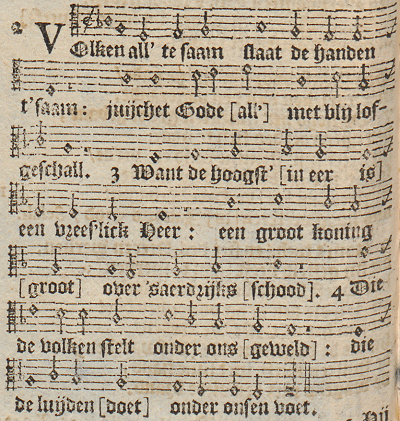 2 VOlken all' te saam slaat de handen
t'saam: juijchet Gode [all'] met blij lof-
geschall. 3 Want de hoogst' [in eer is]
een vreeslick Heer: een groot koning
[groot] over 'saerdrijks [schood]. 4 Die
de volken stelt onder ons [geweld]: die
de luijden [doet] onder onsen voet.